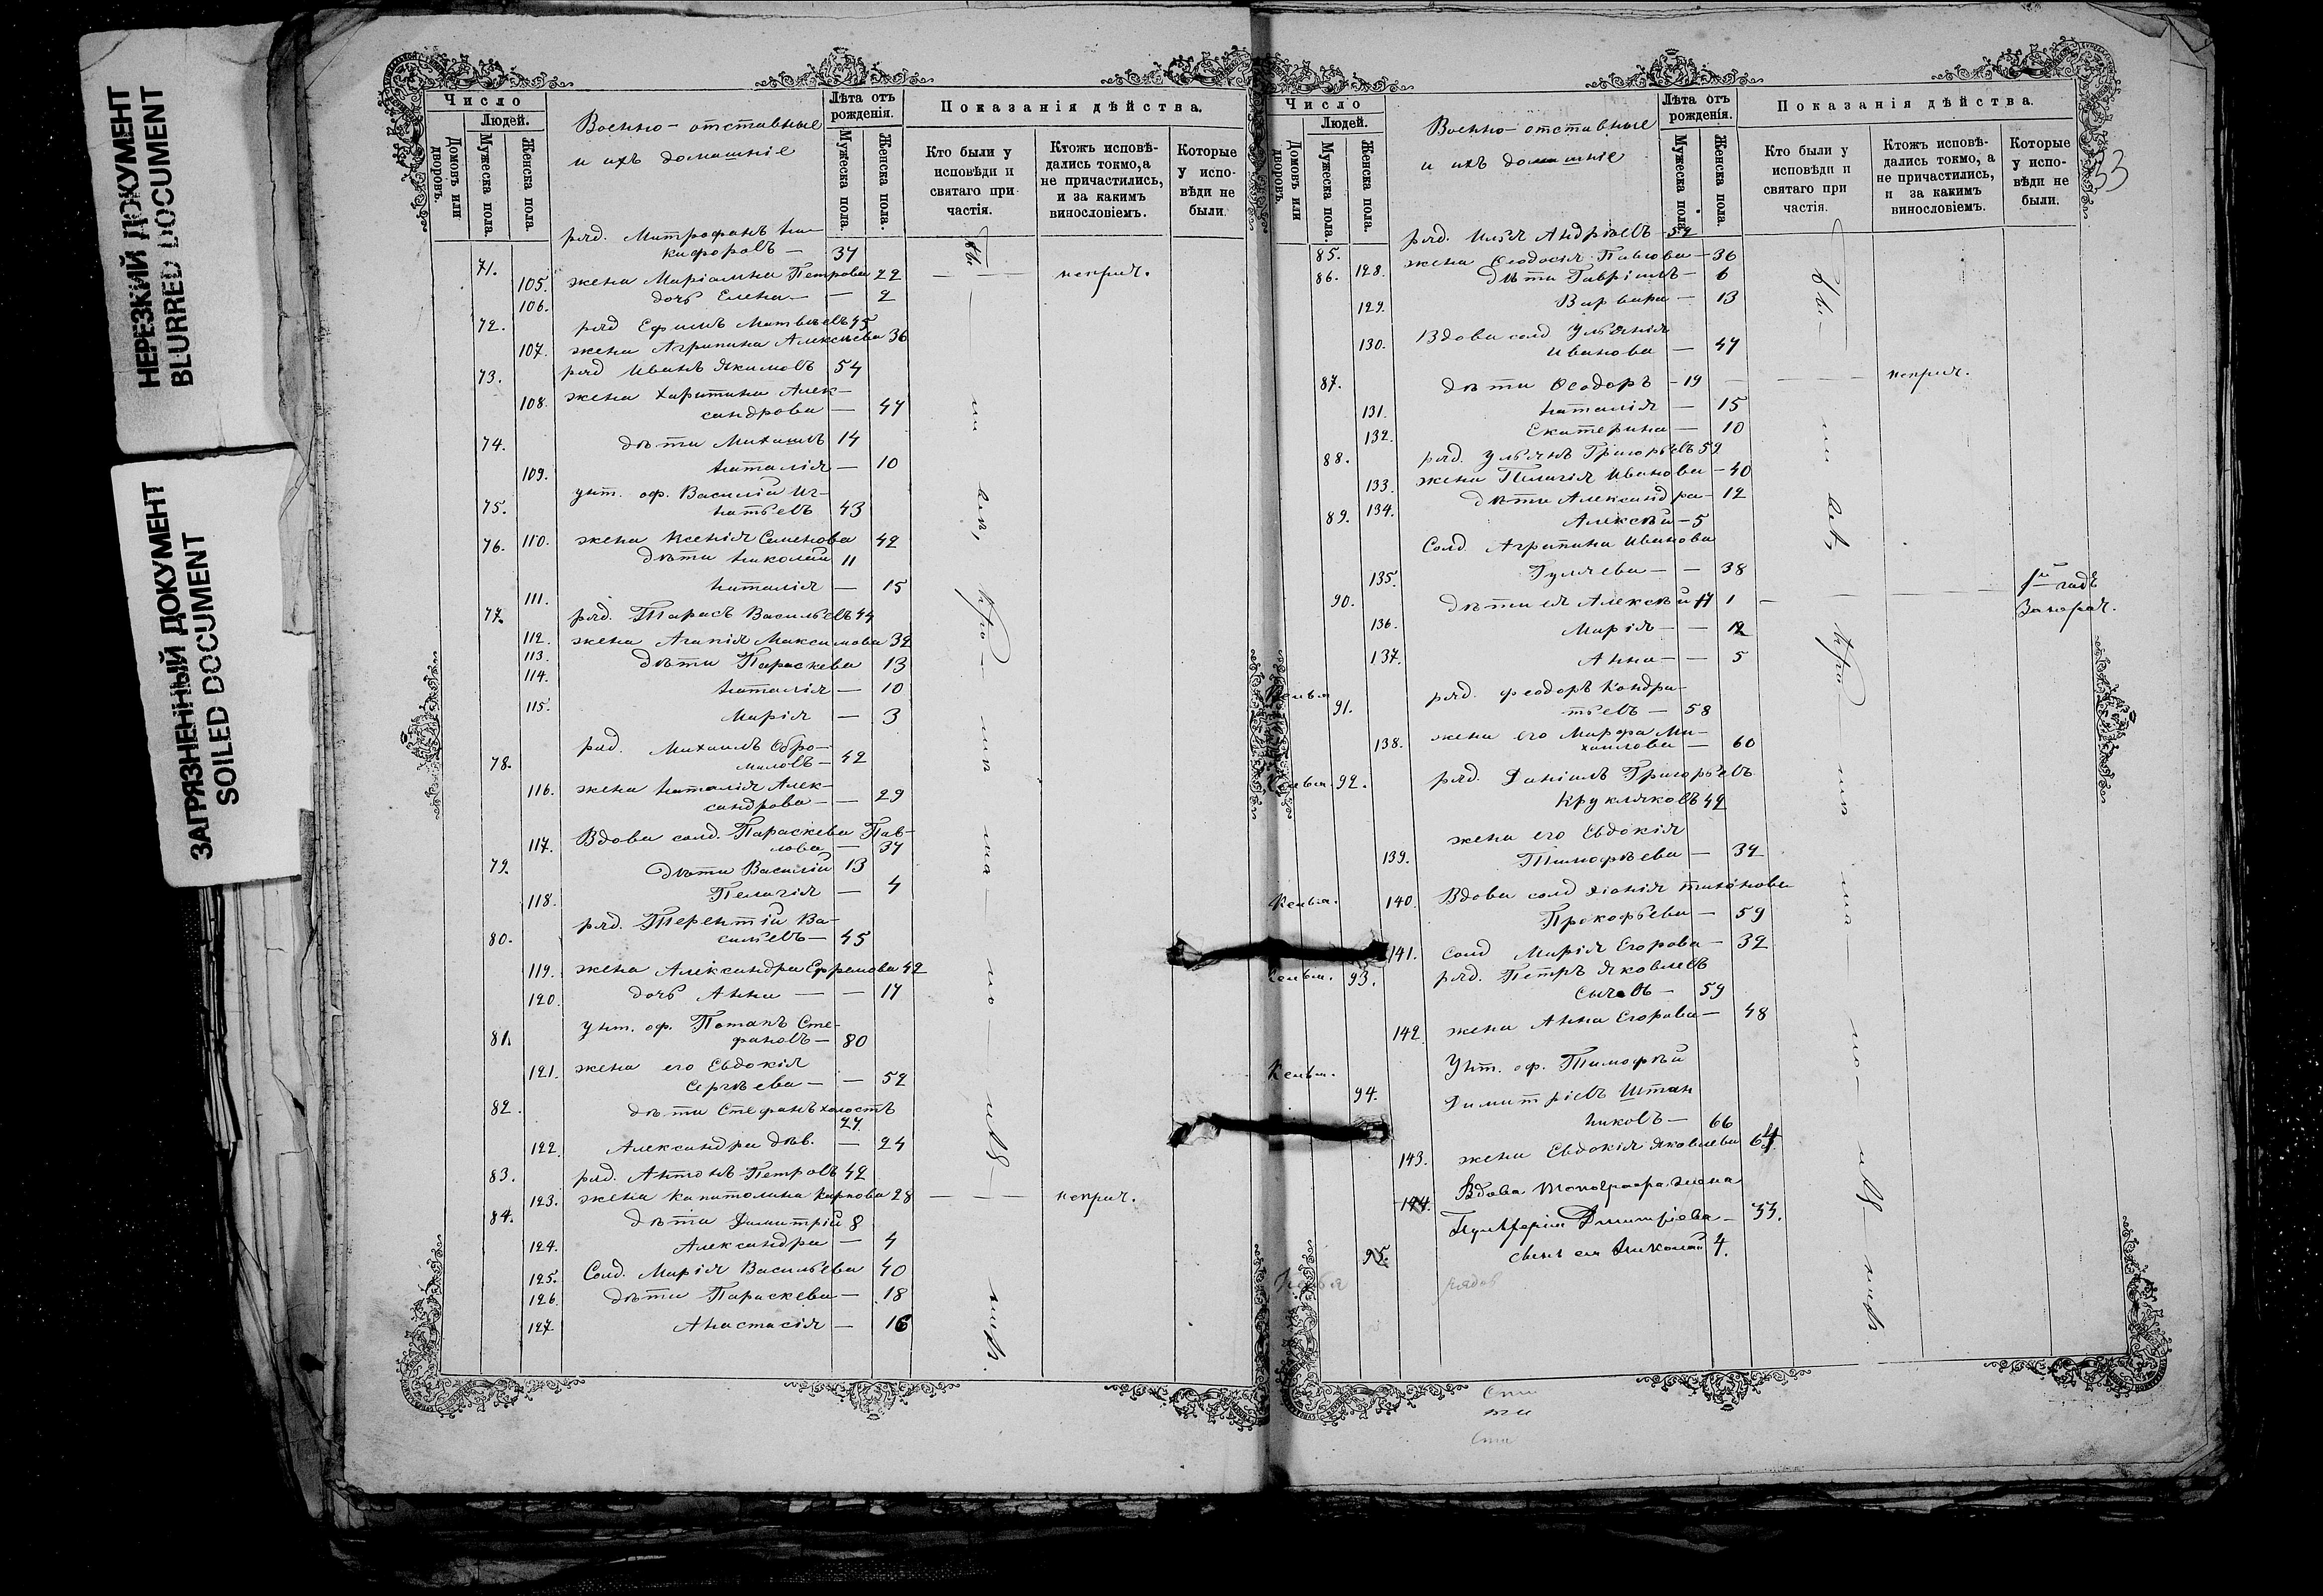 НЕРЕЗКИЙ ДОКУМЕНТ
BLURRED DOCUMENT
ЗАГРЯЗНЕННЫЙ ДОКУМЕНТ
SOILED DOCUMENT
Число
Людей.
Домовъ или дворовъ.
Мужеска пола.
Женска пола.
Военно-отставные
и ихъ домашніе
Лѣта отъ рожденія.
Мужеска пола.
Женска пола.
Показанія дѣйства.
Кто были у исповѣди и святаго причастія.
Ктожъ исповѣдались токмо, а не причастились, и за какимъ винословіемъ.
Которые у исповѣди не были.
ряд. Митрофанъ Ни-
71. кифоровъ — 37
105. жена Маріамна Петрова 22 — — неприч.
106. дочь Елена — — 2
72. ряд Ефимъ Матвѣевъ 45
107. жена Агрипина Алексѣева 36
73. ряд Иванъ Якимовъ 54
108. жена Харитина Алек-
сандрова — 47
74. дѣти Михаилъ 14
109. Наталія — 10
унт. оф. Василій Иг-
75. натьевъ 43
110. жена Ксенія Семенова 42
76. дѣти Николай 11
111. Наталія — 15
77. ряд. Тарасъ Васильевъ 44
112. жена Агапія Максимова 32
113. дѣти Параскева 13
114. Наталія — 10
115. Марія — 3
ряд. Михаилъ
78. — 42
116. жена Наталія Алек-
сандрова — — 29
117. Вдова солд. Параскева Пав-
лова — 37
79. дѣти Василій 13
118. Пелагія — 4
ряд. Терентій Ва-
80. сильевъ — 45
119. жена Александра Ефремова 42
120. дочь Анна — — 17
унт. оф. Потапъ Сте-
81. фановъ — 80
121. жена его Евдокія
Сергѣева — — 52
82. дѣти Стефанъ холостъ
27
122. Александра дѣв. — 24
83. ряд. Антонъ Петровъ 42
123. жена Капитолина Карпова 28 — — неприч.
84. дѣти Димитрій 8
124. Александра — 4
125. Солд. Марія Васильева 40
126. дѣти Параскева — 18
127 Анастасія — 16
Число
Людей.
Домовъ или дворовъ.
Мужеска пола.
Женска пола.
Военно-отставные
и ихъ домашніе
Лѣта отъ рожденія.
Мужеска пола.
Женска пола.
Показанія дѣйства.
Кто были у исповѣди и святаго причастія.
Ктожъ исповѣдались токмо, а не причастились, и за какимъ винословіемъ.
Которые у исповѣди не были.
33
85. ряд. Илья Андріевъ 52
128. жена Ѳеодосія Павлова — 36
86. дѣти Гавріилъ — 6
129. Варвара — 13
Вдова солд Ульянія
130. Иванова — 47
87. дѣти Ѳеодоръ — 19 — — неприч.
131. Наталія — 15
132. Екатерина — 10
88. ряд. Ульянъ Григорьевъ 52
133. жена Пелагія Иванова — 40
134. дѣти Александра — 12
89. Алексѣй — 5
Солд. Агрипина Иванова
135. Гуляева — — 38
90. дѣти ея Алексѣй 17 1
136. Марія — — 12
137. Анна — — 5
ряд. Феодоръ Кондра-
91. тьевъ — 58
138. жена его Марфа Ми-
хаилова — 60
92. ряд. Даніилъ Григорьевъ
Кругляковъ 42
жена его Евдокія
139. Тимофѣева — 32
140. Вдова солд Хіонія Тихонова
Прокофьева — 59
141. Солд Марія Егорова — 32
93. ряд. Петръ Яковлевъ
Сычевъ — 59
142. жена Анна Егорова — 48
Унт. оф. Тимофѣй
94. Димитріевъ Штан
никовъ — 66
143. жена Евдокія Яковлева 64
144. Вдова Топографа жена
Пульхерія Димитріева — 33.
95. сынъ ея Николай 4.
рядов